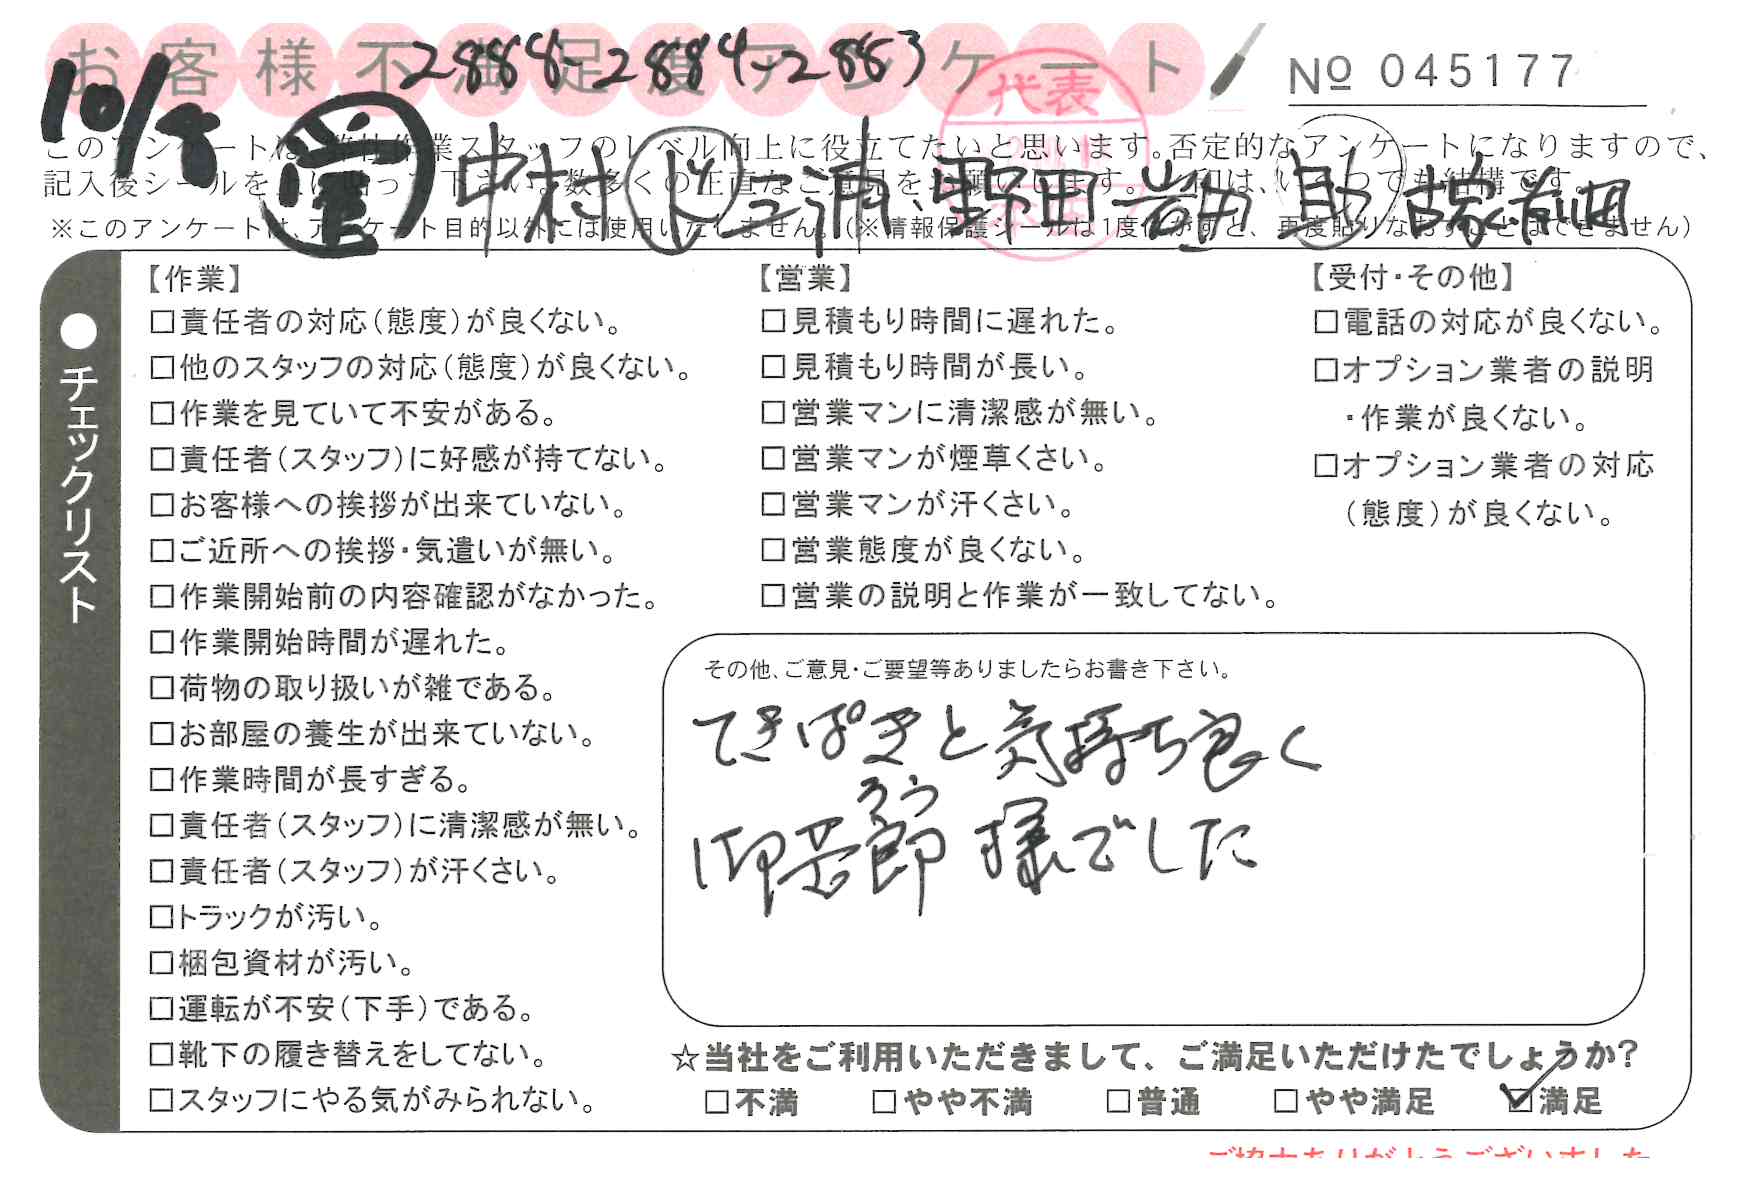 お客様不満足度アンケート
2888-2884-2883
№ 045177
10/8
代表
このアンケートは、弊社作業スタッフのレベル向上に役立てたいと思います。否定的なアンケートになりますので、
記入後シールを上に貼って下さい。数多くの正直なご意見をお願いします。
中村 ド 三浦、野田
※このアンケートは、アンケート目的以外には使用いたしません。(※情報保護シールは1度はがすと、再度貼りなおすことはできません)
●チェックリスト
【作業】
□責任者の対応(態度)が良くない。
□他のスタッフの対応(態度)が良くない。
□作業を見ていて不安がある。
□責任者(スタッフ)に好感が持てない。
□お客様への挨拶が出来ていない。
□ご近所への挨拶・気遣いが無い。
□作業開始前の内容確認がなかった。
□作業開始時間が遅れた。
□荷物の取り扱いが雑である。
□お部屋の養生が出来ていない。
□作業時間が長すぎる。
□責任者(スタッフ)に清潔感が無い。
□責任者(スタッフ)が汗くさい。
□トラックが汚い。
□梱包資材が汚い。
□運転が不安(下手)である。
□靴下の履き替えをしてない。
□スタッフにやる気がみられない。
【営業】
□見積もり時間に遅れた。
□見積もり時間が長い。
□営業マンに清潔感が無い。
□営業マンが煙草くさい。
□営業マンが汗くさい。
□営業態度が良くない。
□営業の説明と作業が一致してない。
【受付・その他】
□電話の対応が良くない。
□オプション業者の説明
・作業が良くない。
□オプション業者の対応
(態度)が良くない。
その他、ご意見・ご要望等ありましたらお書き下さい。
てきぱきと気持ち良く
ろう
御苦郎様でした
☆当社をご利用いただきまして、ご満足いただけたでしょうか?
□不満 □やや不満 □普通 □やや満足 ☑満足
ご協力ありがとうございました